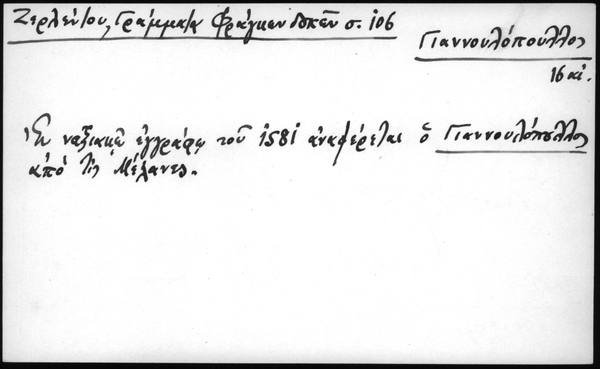 Ζερλέντου, Γράμματα Φράγκων δουκῶν σ. 106
Γιαννουλόπουλλος
16 αἰ.
Ἐν ναξιακῷ ἐγγράφῳ τοῦ 1581 ἀναφέρεται ὁ Γιαννουλόπουλλος
ἀπὸ τὶς Μέλανες.